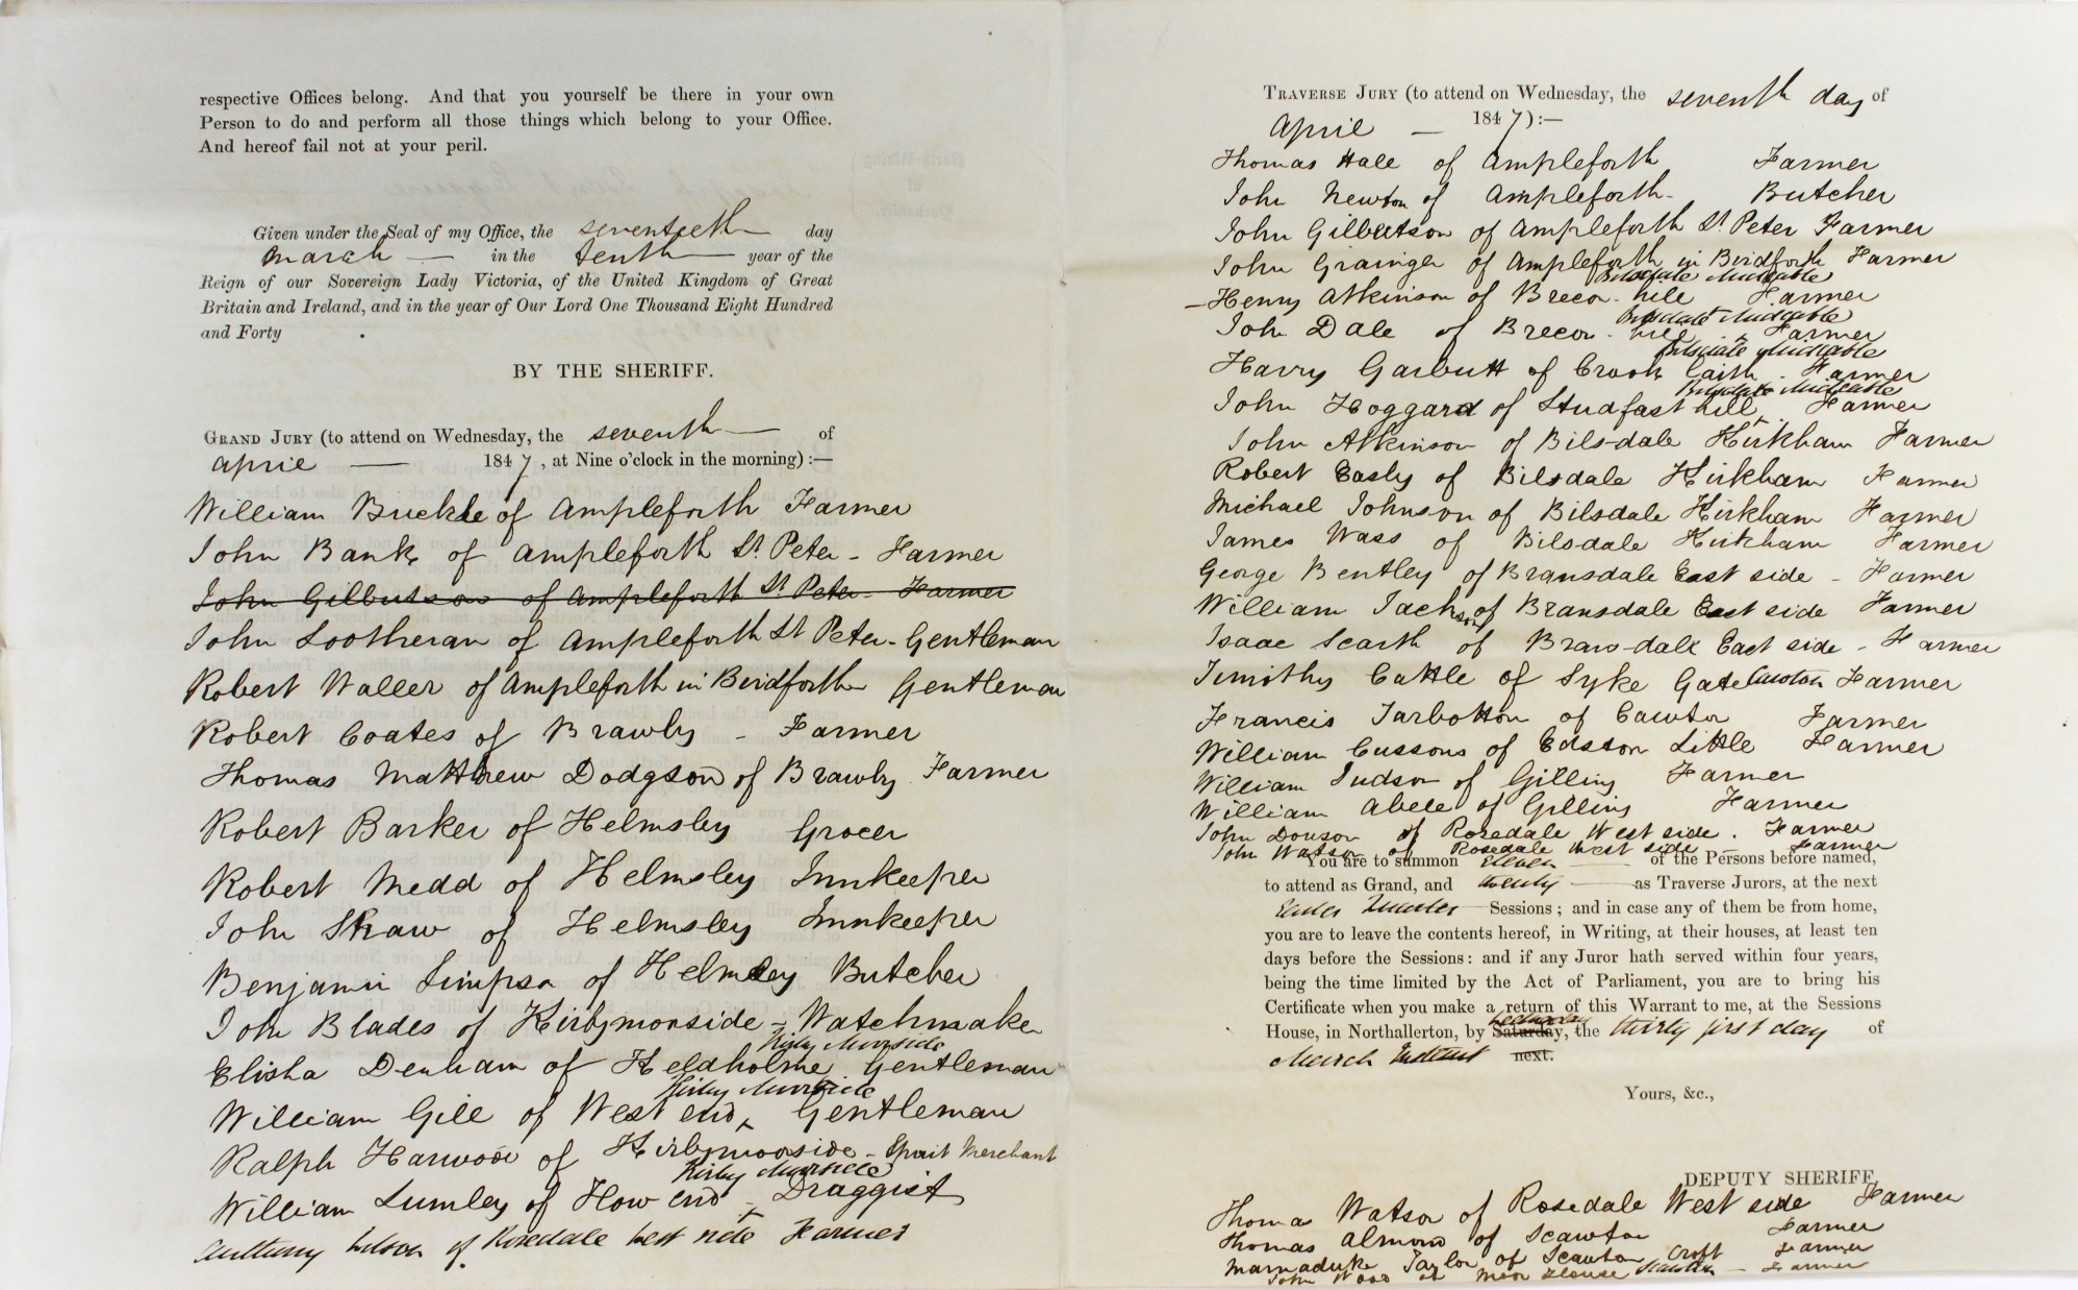 respective Offices belong. And that you yourself be there in your own
Person to do and perform all those things which belong to your Office.
And hereof fail not at your peril.
Given under the Seal of my Office, the seventeeth day
March — in the tenth — year of the
Reign of our Sovereign Lady Victoria, of the United Kingdom of Great
Britain and Ireland, and in the year of Our Lord One Thousand Eight Hundred
and Forty .
BY THE SHERIFF.
GRAND JURY (to attend on Wednesday, the seventh — of
april — 1847, at Nine o'clock in the morning) :—
William Buckle of Ampleforth Farmer
John Bank of Ampleforth St Peter - Farmer
John Gilbertson of Ampleforth St Peter - Farmer
John Sootheran of Ampleforth St Peter - Gentleman
Robert Waller of Ampleforth in Birdforth Gentleman
Robert Coates of Brawby - Farmer
Thomas Matthew Dodgson of Brawby Farmer
Robert Barker of Helmsley Grocer
Robert Medd of Helmsley Innkeeper
John Shaw of Helmsley Innkeeper
Benjamin Simpson of Helmsley Butcher
John Blades of Kirbymoorside - Watchmaker
Kirby Moorside
Elisha Denham of Keldholme Gentleman
Kirby Moorside
William Gill of West end, Gentleman
Ralph Harwood of Kirbymoorside - Spirit Merchant
Kirby Moorside
William Lumley of How end, Draggist
Anthony Wilson of Rosedale West side Farmer
TRAVERSE JURY (to attend on Wednesday, the seventh day of
April — 1847) :—
Thomas Hall of Ampleforth Farmer
John Newton of Ampleforth - Butcher
John Gilbertson of Ampleforth St Peter Farmer
John Grainger of Ampleforth in Birdforth Farmer
Bilsdale Midcable
- Henry Atkinson of Brecon - hill Farmer
Bilsdale Midcable
John Dale of Brecon - hill Farmer
Bilsdale Midcable
Harry Garbutt of Crook Laith . Farmer
Bilsdale Midcable
John Hoggard of Studfast hill, Farmer
John Atkinson of Bilsdale Kirkham Farmer
Robert Easby of Bilsdale Kirkham Farmer
Michael Johnson of Bilsdale Kirkham Farmer
James Wass of Bilsdale Kirkham Farmer
George Bentley of Bransdale East side - Farmer
William Jackson of Bransdale East side Farmer
Isaac Scarth of Brans-dale East side - Farmer
Timothy Cattle of Syke Gate Cawton Farmer
Francis Tarbotton of Cawton Farmer
William Cussons of Edston Little Farmer
William Judson of Gilling Farmer
William Abell of Gilling Farmer
John Dowson of Rosedale West side . Farmer
John Watson of Rosedale West side Farmer
You are to summon Eleven — of the Persons before named,
to attend as Grand, and twenty — as Traverse Jurors, at the next
Easter Quarter Sessions ; and in case any of them be from home,
you are to leave the contents hereof, in Writing, at their houses, at least ten
days before the Sessions : and if any Juror hath served within four years,
being the time limited by the Act of Parliament, you are to bring his
Certificate when you make a return of this Warrant to me, at the Sessions
Wednesday
House, in Northallerton, by Saturday, the thirty first day of
March Instant next.
Yours, &c.,
DEPUTY SHERIFF.
Thomas Watson of Rosedale West side Farmer
Thomas Almond of Scawton Farmer
Marmaduke Taylor of Scawton Croft Farmer
John Wood of Moor House Scawton - Farmer